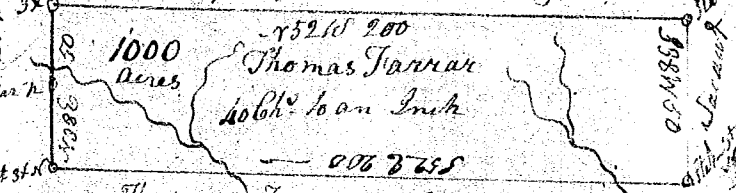 N 52 W 200
1000
acres
Thomas Farrar
40 Chs. to an Inch
S 52 E 200
N 38 E 50
S 38 W 50